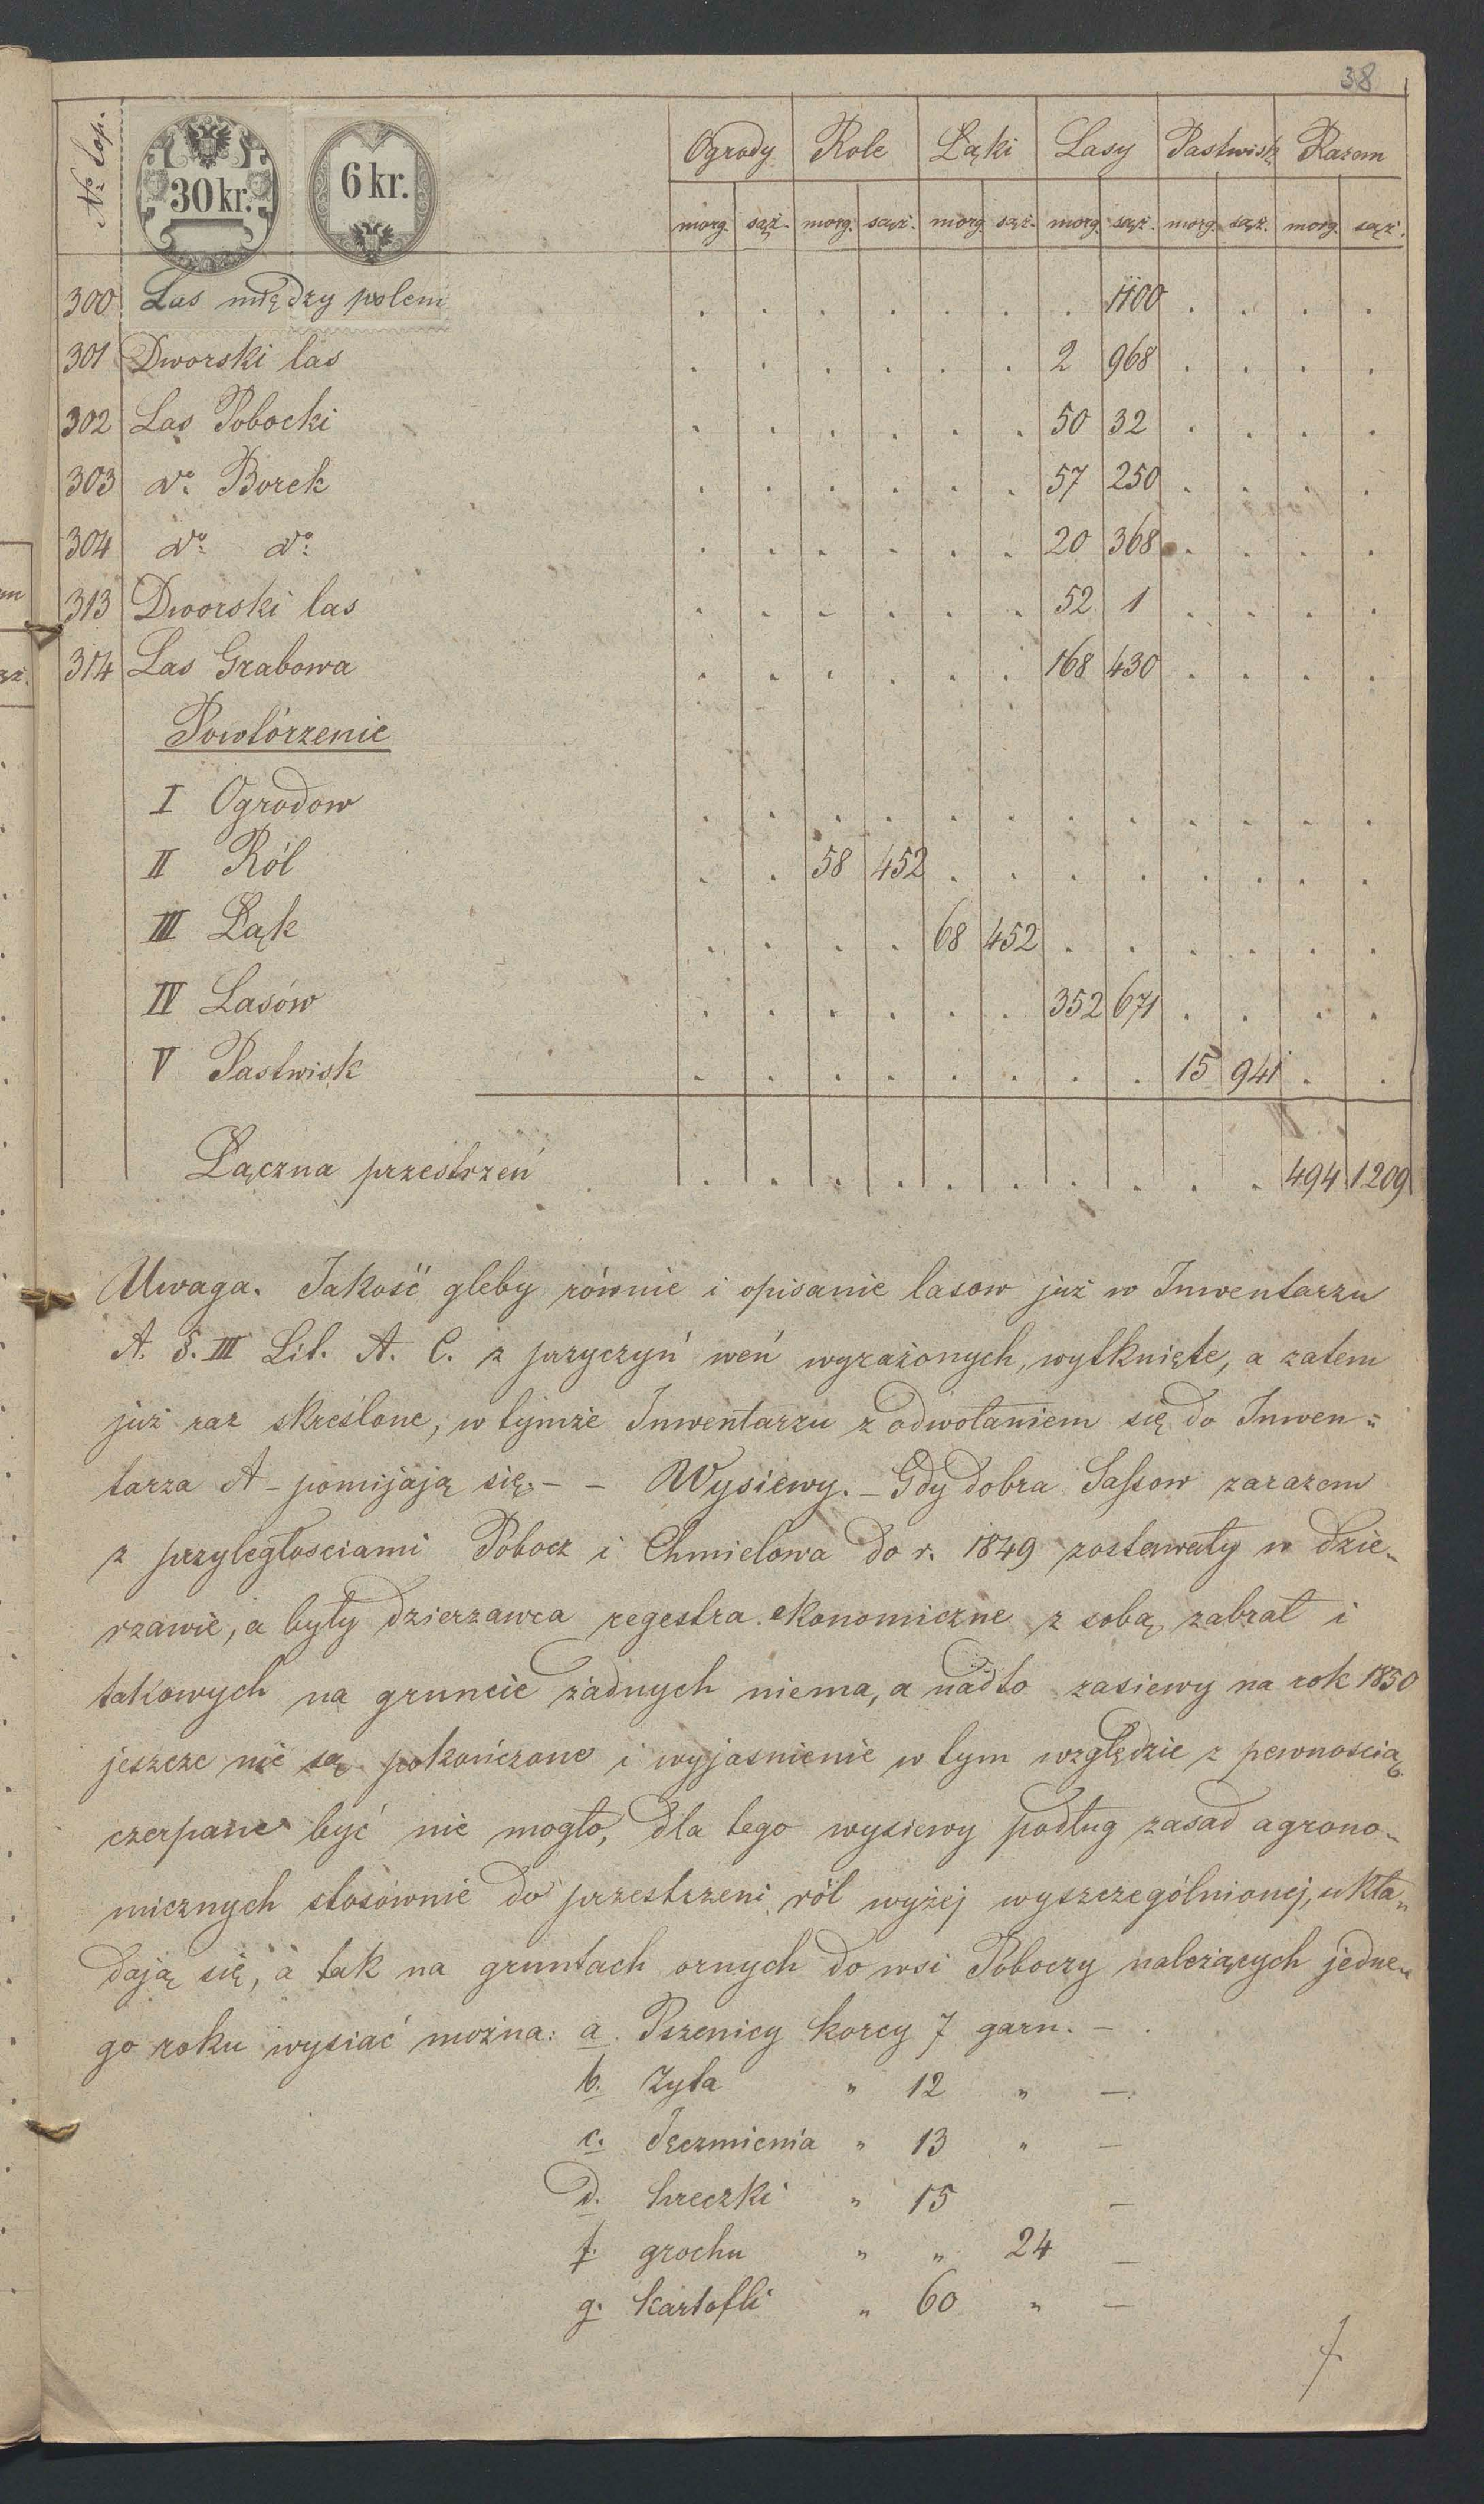 38
No top.
30 kr. 6 kr.
Ogrody Role Łąki Lasy Pastwisk Razem
morg. sąż. morg. sąż. morg. sąż. morg. sąż. morg. sąż. morg. sąż.
300 Las między polem . . . . . . . 1100 . . . .
301 Dworski las . . . . . . 2 968 . . . .
302 Las Pobocki . . . . . . 50 32 . . . .
303 do Borek . . . . . . 57 250 . . . .
304 do do . . . . . . 20 368 . . . .
313 Dworski las . . . . . . 52 1 . . . .
314 Las Grabowa . . . . . . 168 430 . . . .
Powtórzenie
I Ogrodow . . . . . . . . . . . .
II Ról . . 58 452 . . . . . . . .
III Łąk . . . . 68 452 . . . . . .
IV Lasów . . . . . . 352 671 . . . .
V Pastwisk . . . . . . . . 15 941 . .
Łączna przestrzeń . . . . . . . . . . 494 1209
Uwaga. Jakość gleby równie i opisanie lasow już w Inwentarzu
A. §. III Lit. A. C. z przyczyń weń wyrażonych, wytknięte, a zatem
już raz skreślone, w tymże Inwentarzu z odwołaniem się do Inwen=
tarza A - pomijają się. - - Wysiewy. - Gdy dobra Sassow zarazem
z przyległosciami Pobocz i Chmielowa do r. 1849 zostawały w dzie-
rzawie, a były dzierzawca regestra ekonomiczne z sobą zabrał i
takowych na gruncie żadnych niema, a nadto zasiewy na rok 1850
jeszcze nie są pokończone i wyjasnienie w tym względzie z pewnoscią
czerpane być nie mogło, dla tego wysiewy podług zasad agrono-
micznych stosównie do przestrzeni ról wyżej wyszczególnionej, ukła-
dają się, a tak na gruntach ornych do wsi Poboczy należących jedne-
go roku wysiać można: a. Pszenicy korcy 7 garn. - .
b. Zyta " 12 " -
c. Jęczmienia " 13 " -
d. hreczki " 15 -
f. grochu " " 24 -
g. kartofli " 60 " -